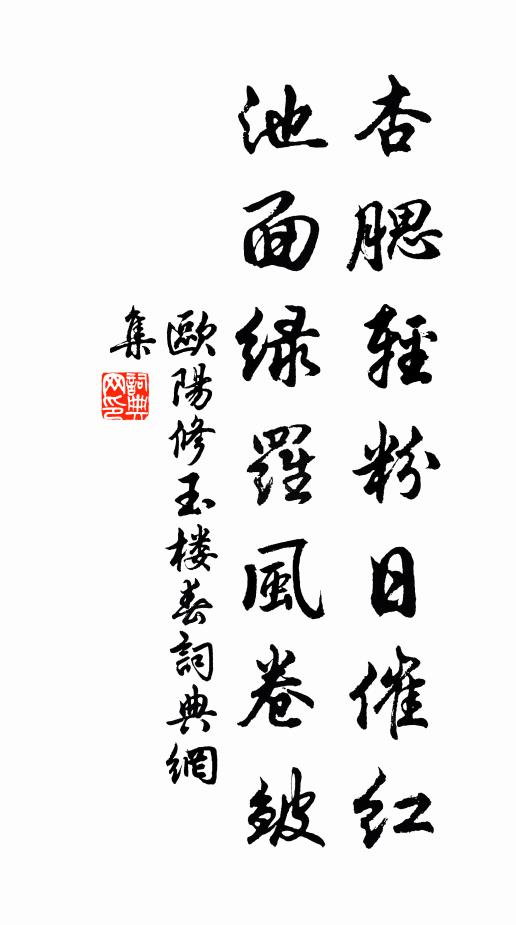 杏腮輕粉日催紅
池面綠羅風卷皺
歐陽修玉楼春詞典網
集
詞典網印